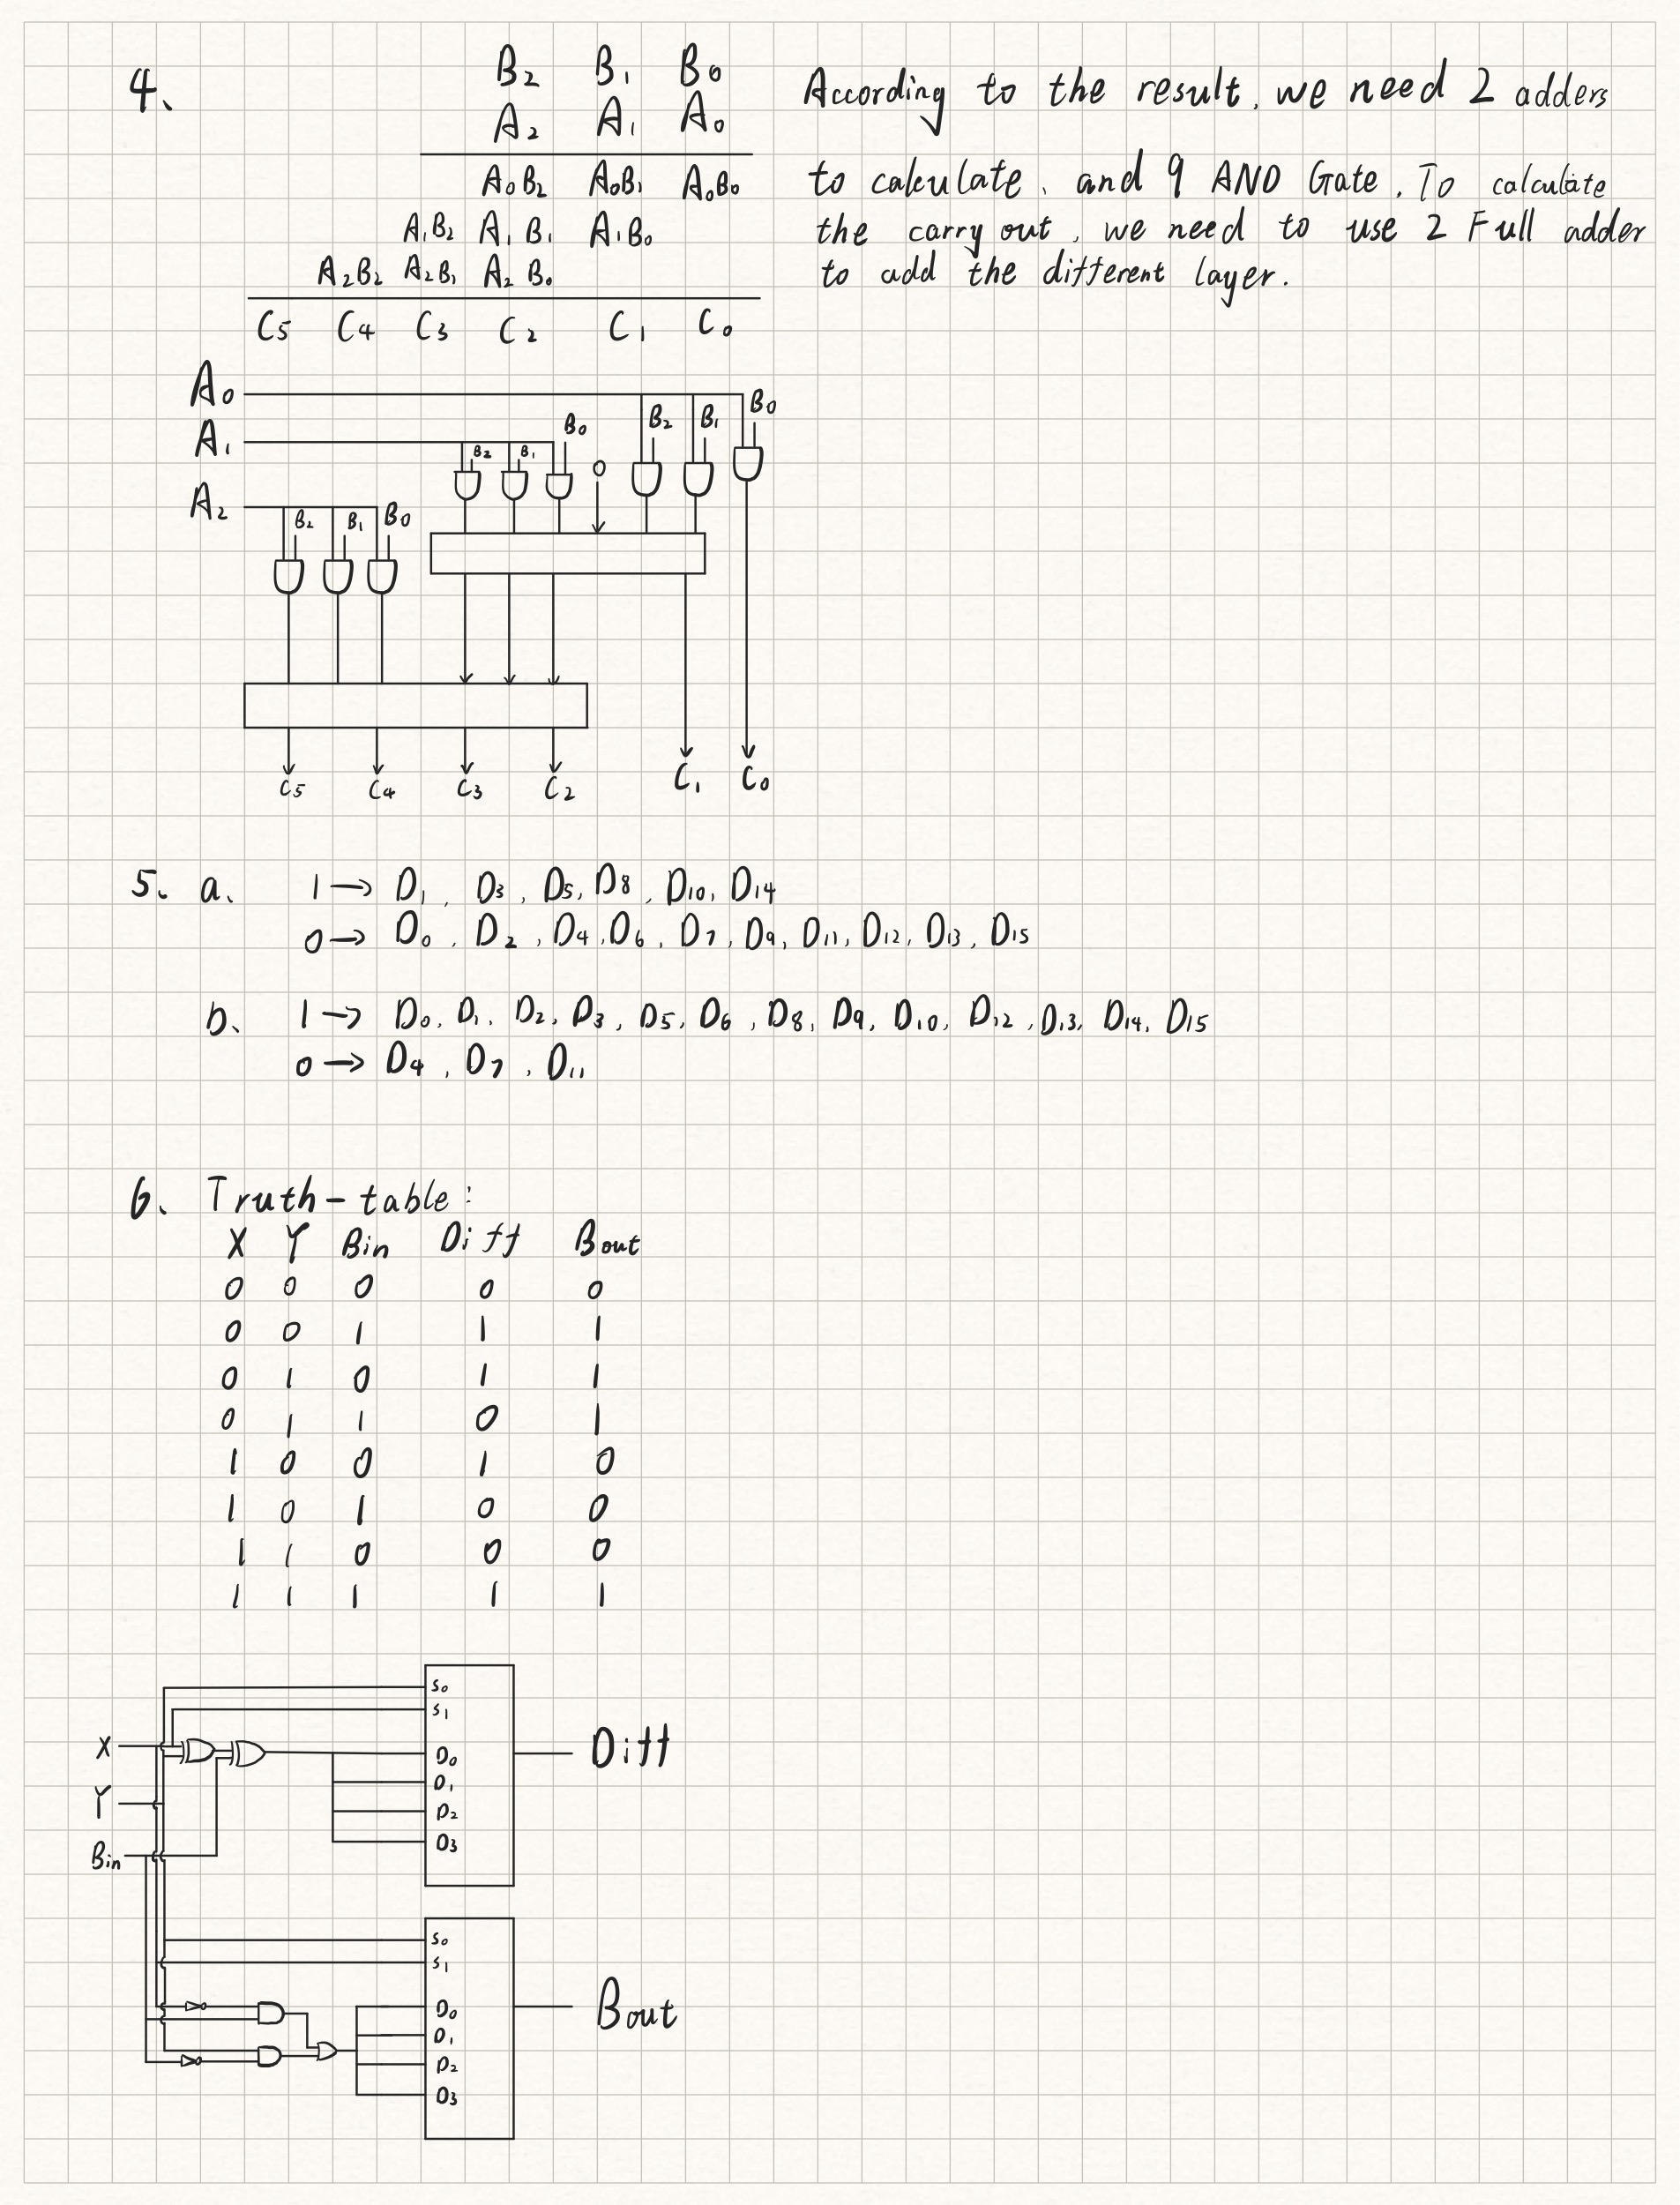 4、
B₂ B₁ B₀
A₂ A₁ A₀
A₀B₂ A₀B₁ A₀B₀
A₁B₂ A₁B₁ A₁B₀
A₂B₂ A₂B₁ A₂B₀
C₅ C₄ C₃ C₂ C₁ C₀
According to the result, we need 2 adders
to calculate, and 9 AND Gate. To calculate
the carry out, we need to use 2 Full adder
to add the different layer.
A₀ B₂ B₁ B₀
A₁ B₂ B₁ B₀ 0
A₂ B₂ B₁ B₀
C₅ C₄ C₃ C₂ C₁ C₀
5、a、 1 → D₁, D₃, D₅, D₈, D₁₀, D₁₄
0 → D₀, D₂, D₄, D₆, D₇, D₉, D₁₁, D₁₂, D₁₃, D₁₅
b、 1 → D₀, D₁, D₂, D₃, D₅, D₆, D₈, D₉, D₁₀, D₁₂, D₁₃, D₁₄, D₁₅
0 → D₄, D₇, D₁₁
6、Truth-table:
X Y Bin Diff Bout
0 0 0 0 0
0 0 1 1 1
0 1 0 1 1
0 1 1 0 1
1 0 0 1 0
1 0 1 0 0
1 1 0 0 0
1 1 1 1 1
S₀
S₁
X D₀ Diff
D₁
Y D₂
D₃
Bin
S₀
S₁
D₀ Bout
D₁
D₂
D₃